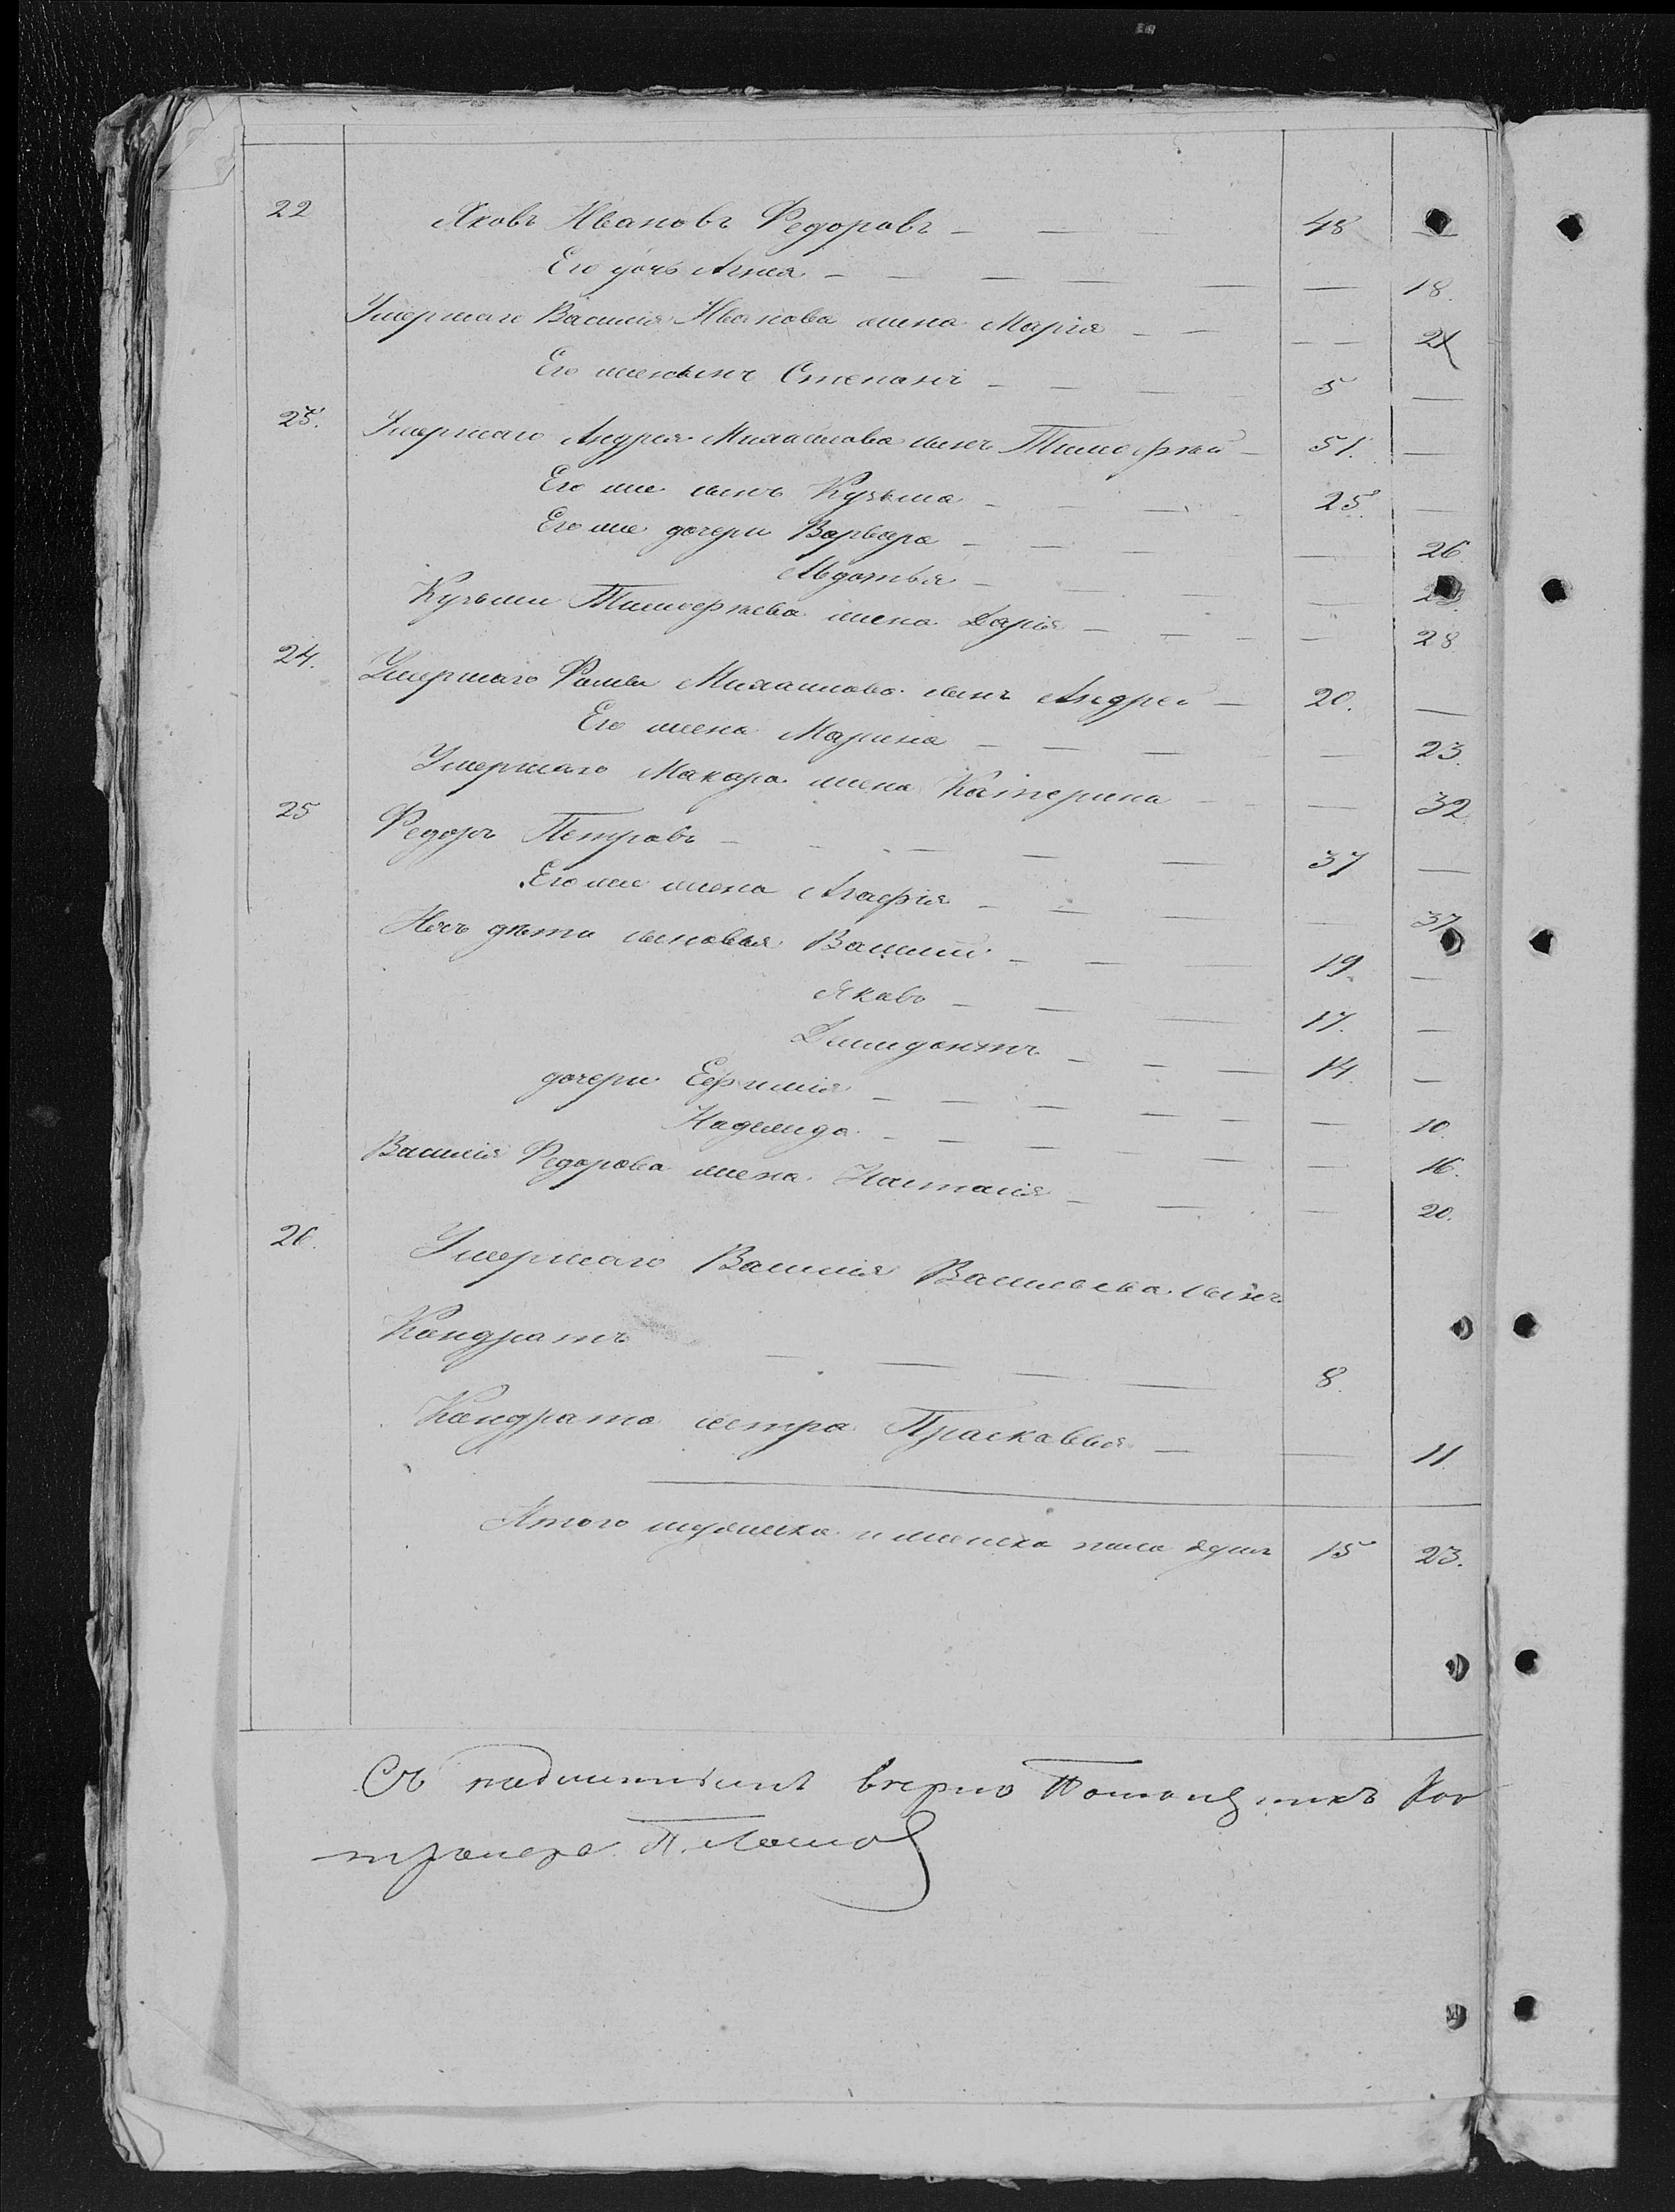 22 Яковъ Ивановъ Федоровъ — — — 48 —
Его дочь Агнея — — — — — — 18.
Умершаго Василія Иванова жена Марія — — — — 21
Его же сынъ Степанъ — — — — 5 —
23. Умершаго Андрея Михайлова сынъ Тимофѣй — 51. —
Его же сынъ Кузьма — — — — 25. —
Его же дочери Варвара — — — — — 26
Авдотья — — — — —
Кузьмы Тимофѣева жена Дарія — — — — 28
24. Умершаго Михайлова сынъ Андрей — 20. —
Его жена Марина — — — — — 23.
Умершаго Макара жена Катерина — — — 32.
25 Федоръ Петровъ — — — — — — 37 —
Его же жена Агафія — — — — 37
Ихъ дѣти сыновья Василій — — — 19. —
Яковъ — — — 17. —
Димидонтъ — — — 14. —
дочери Ефимія — — — — — — 10.
Надежда — — — — — — 16.
Василія Федорова жена Настасія — — — 20.
26. Умершаго Василія Васильева сынъ
Кондратъ — — — — — 8.
Кондрата сестра Прасковья — — 11.
Итого мужеска и женска пола душъ 15 23.
Съ подлиннымъ вѣрно Помощникъ Кон
тролера П.